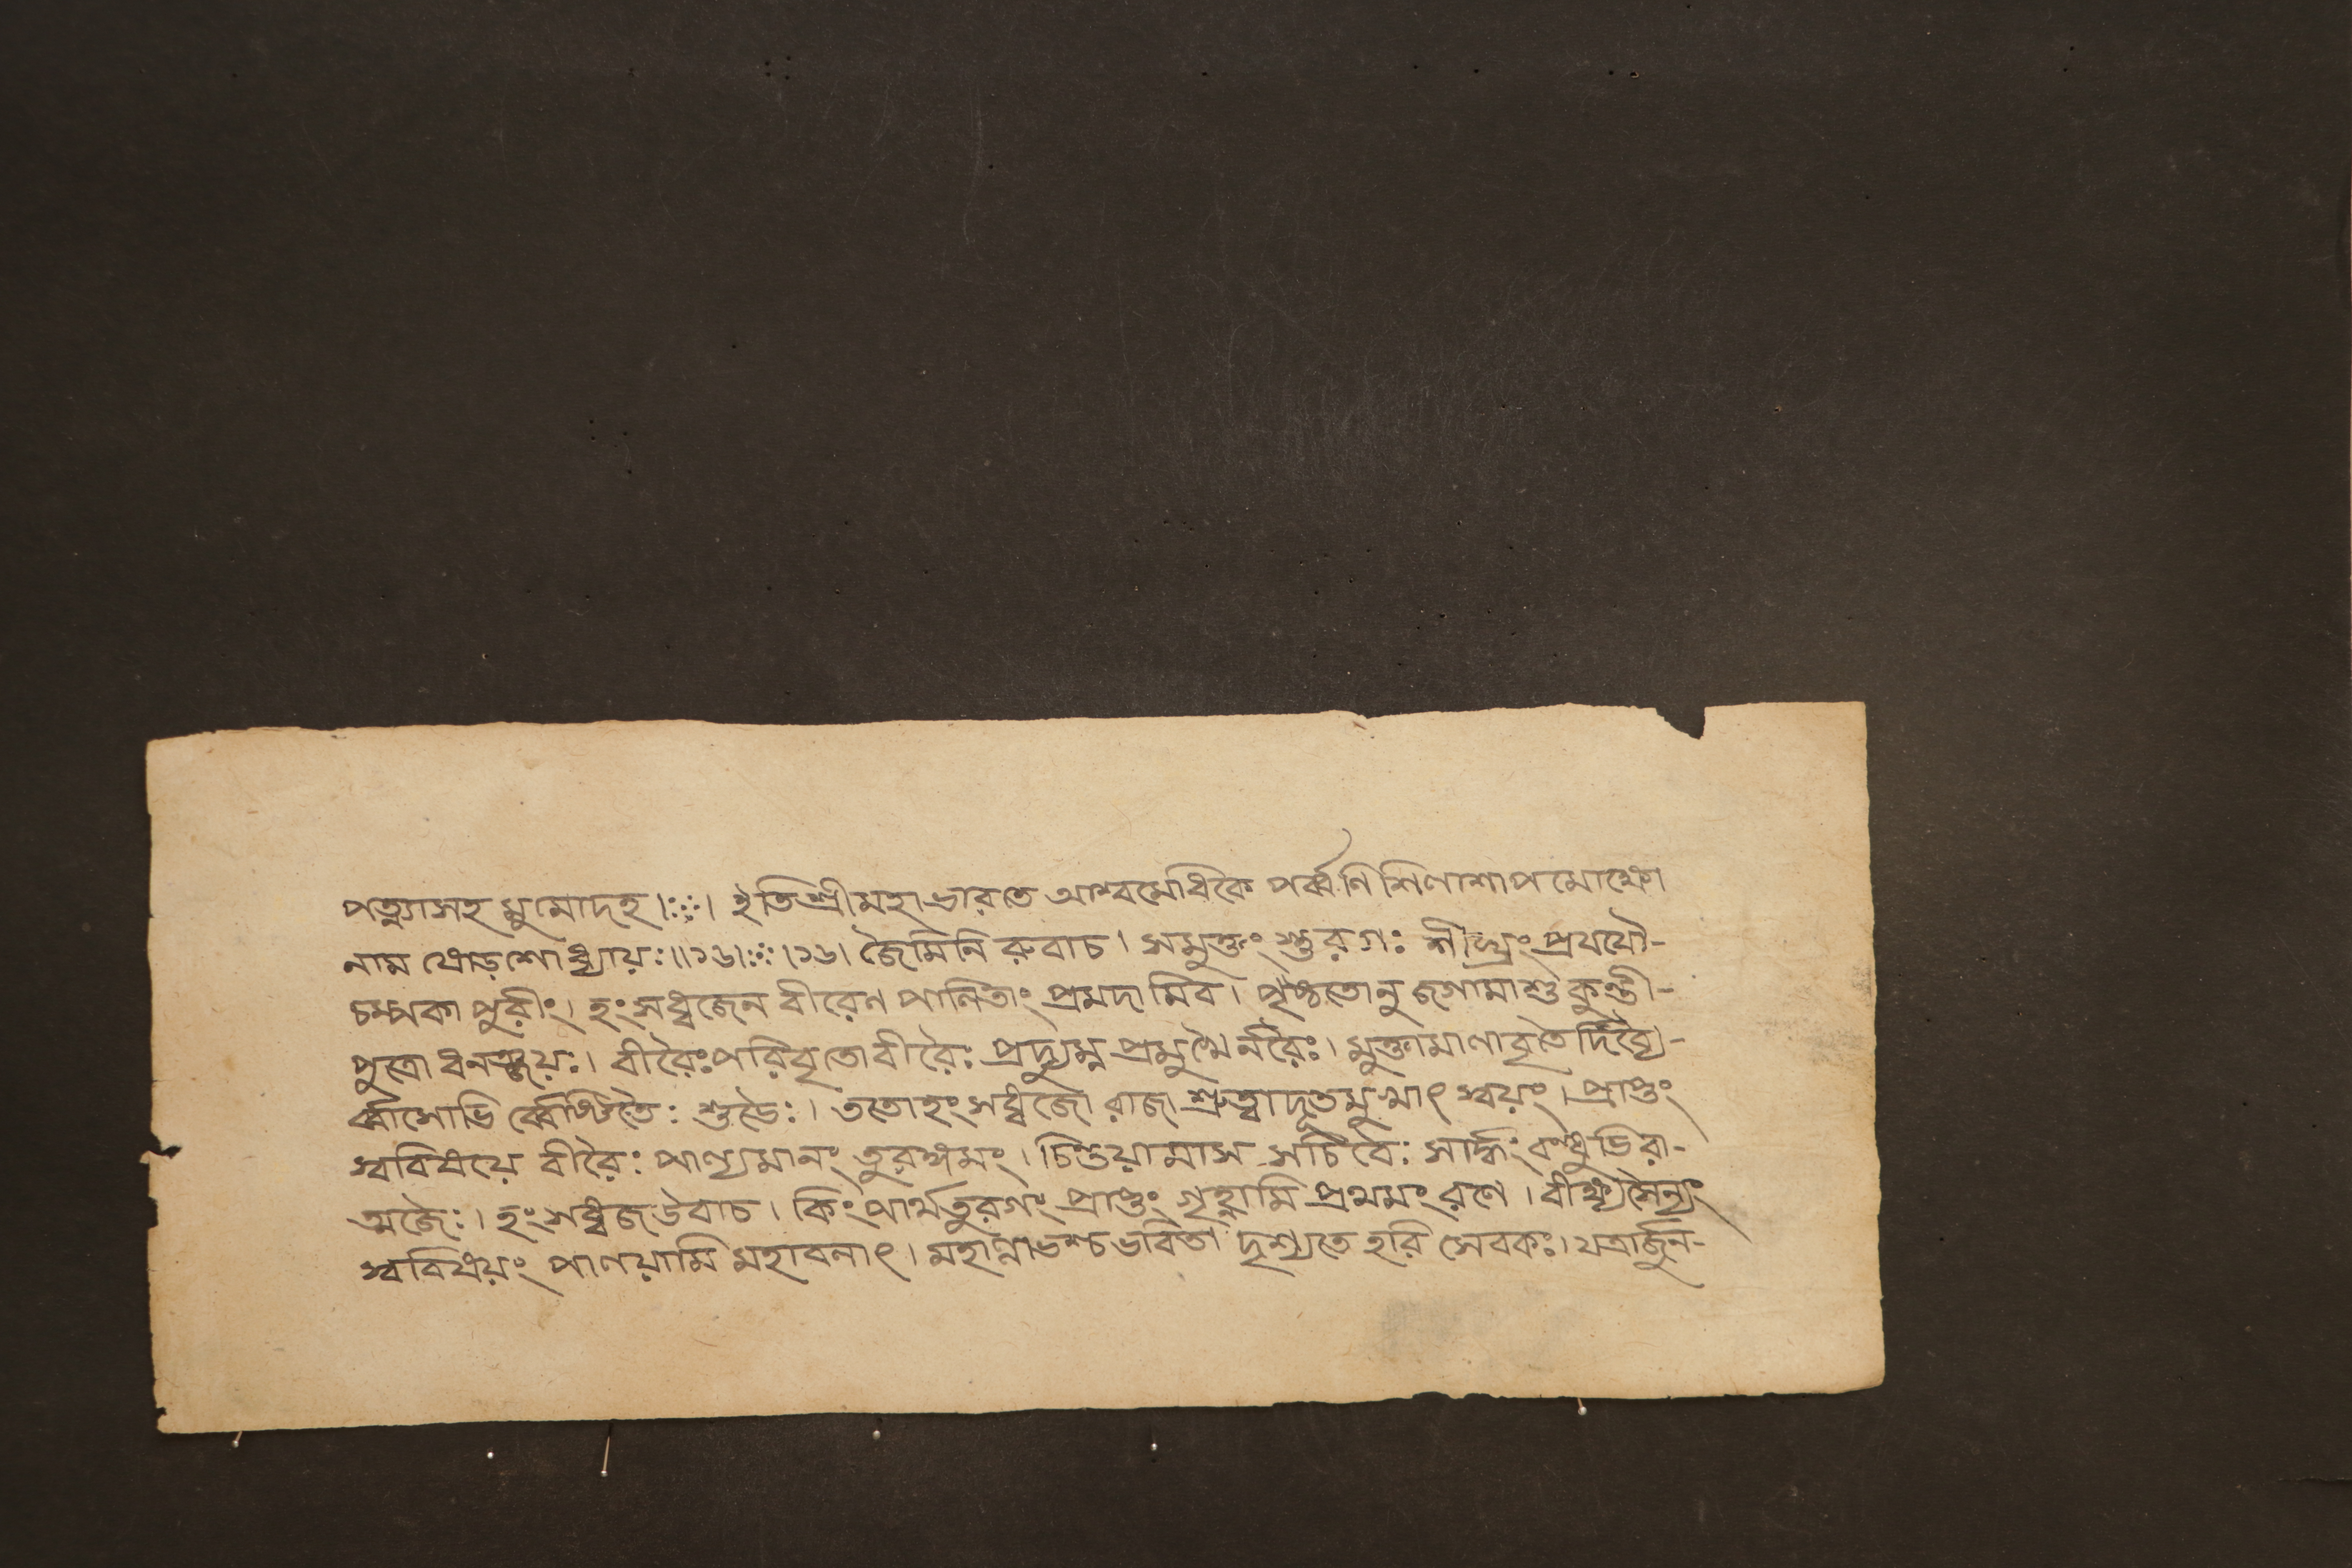 পত্ন্যাসহ মুমোদহ।ঃ৹ঃ। ইতিশ্রীমহাভারতে আশ্বমেধিকৈ পর্ব্বণি শিলাশাপমোক্ষো
নাম ষোড়শোধ্যায়ঃ॥১৬।ঃ৹ঃ।১৬। জৈমিনি রুবাচ। সমুক্তং স্তুরগঃ শীঘ্রং প্রযযৌ-
চম্পকা পুরীং। হংসধ্বজেন বীরেণ পালিতাং প্রমদামিব। পৃষ্ঠতোনু জগামাশু কুন্তী-
পুত্রো ধনঞ্জয়ঃ। বীরৈঃপরিবৃতোবীরৈঃ প্রদ্যুম্ন প্রমুখৈর্নরৈঃ। মুক্তামালাবৃতৈর্দিব্যৈ-
র্ব্বাসোভি র্ব্বেষ্টিতৈঃ শুভৈঃ। ততোহংসধ্বজো রাজা শ্রুত্বাদূতমুখাৎ স্বয়ং। প্রাপ্তং
স্ববিষয়ে বীরৈঃ পাল্যমানং তুরঙ্গমং। চিন্তয়ামাস সচিবৈঃ সার্দ্ধং বন্ধুভিরা-
ত্মজৈঃ। হংসধ্বজউবাচ। কিংপার্থতুরগং প্রাপ্তং গৃহ্ণামি প্রথমং রণে। বীক্ষ্যসৈন্যং
স্ববিষয়ং পালয়ামি মহাবলাৎ। মহাল্লাভশ্চভবিতা দৃশ্যতে হরি সেবকঃ। যত্রার্জুন-